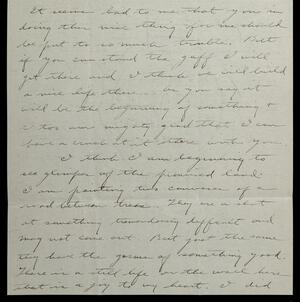 It seems bad to me that you in
doing this nice thing for me should
be put to so much trouble. But
if you can stand the gaff I will
get there and I think we will build
a nice life there. As you say it
will be the beginning of something &
I too am mighty glad that I can
have a crack at it there with you.
I think I am beginning to
see glimpses of the promised land.
I am painting two canvases of a
road between trees. They are a shot
at something tremendously difficult and
may not come out. But just the same
they have the germs of something good.
There is a still life on the wall here
that is a joy to my heart. I did